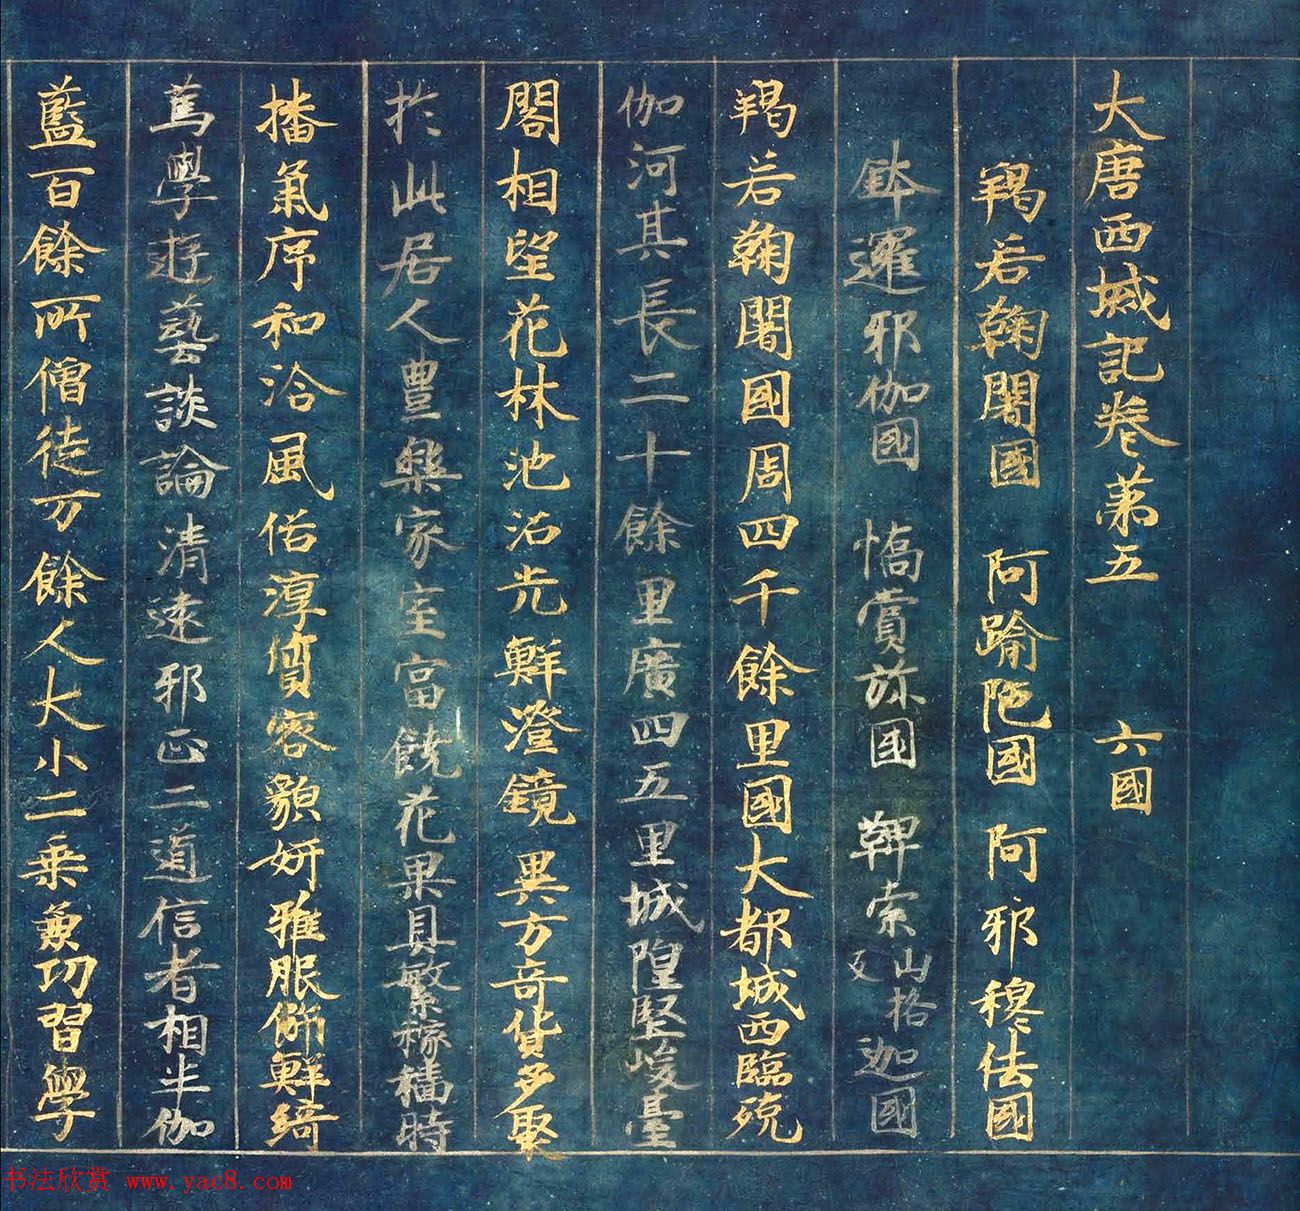 大唐西域記卷第五 六國
羯若鞠闍國 阿踰陁國 阿耶穆佉國
鉢邏耶伽國 憍賞弥國 鞞索山格反迦國
羯若鞠闍國周四千餘里國大都城西臨殑
伽河其長二十餘里廣四五里城隍堅峻臺
閣相望花林池沼光鮮澄鏡異方奇貨多聚
於此居人豊樂家室富饒花果具繁稼穡時
播氣序和洽風俗淳質容貌妍雅服飾鮮綺
篤學遊藝談論清遠邪正二道信者相半伽
藍百餘所僧徒万餘人大小二乘兼功習學
书法欣赏 www.yac8.com